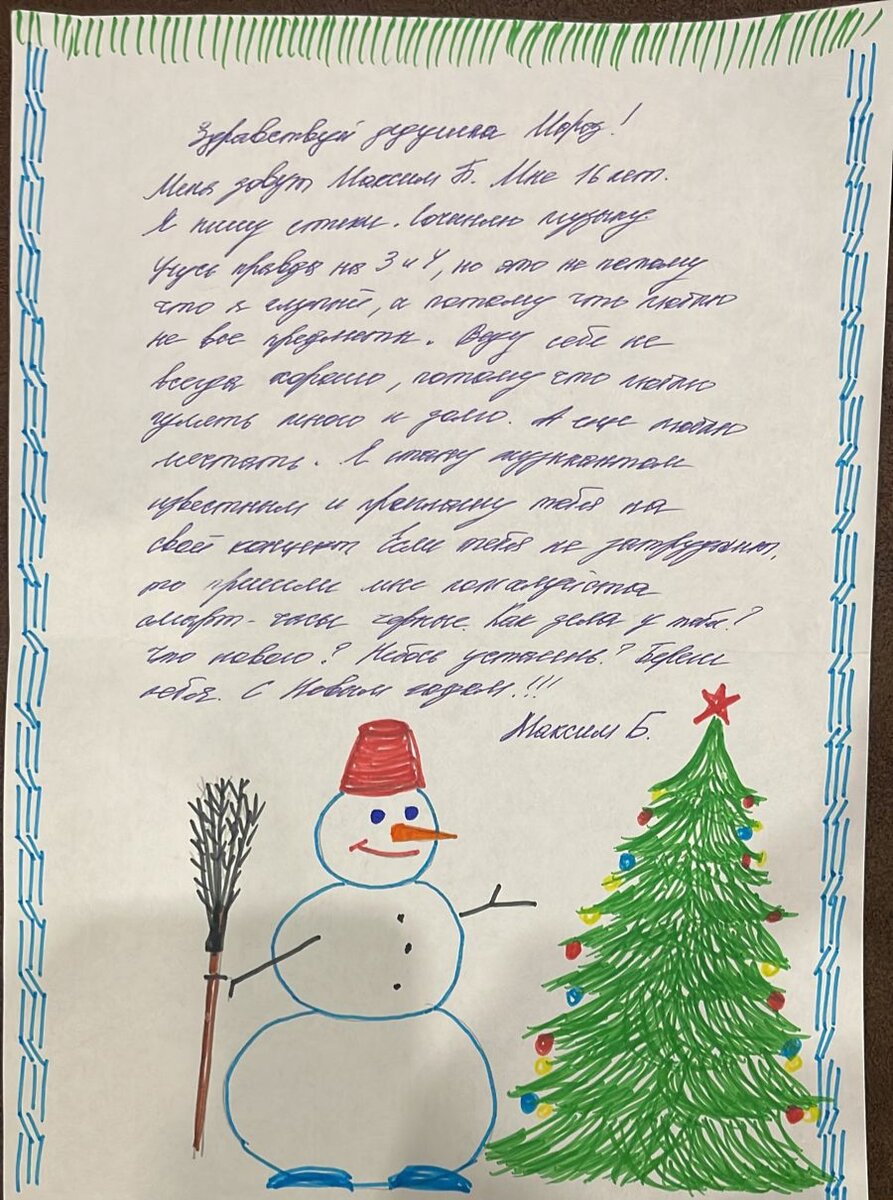 Здравствуй дедушка Мороз!
Меня зовут Максим Б. Мне 16 лет.
Я пишу стихи. Сочиняю музыку.
Учусь правда на 3 и 4, но это не потому
что я глупый, а потому что люблю
не все предметы. Веду себя не
всегда хорошо, потому что люблю
гулять много и долго. А еще люблю
мечтать. Я стану музыкантом
известным и приглашу тебя на
свой концерт. Если тебя не затруднит,
то пришли мне пожалуйста
смарт-часы черные. Как дела у тебя?
Что нового? Небось устаешь? Береги
себя. С Новым годом!!!
Максим Б.